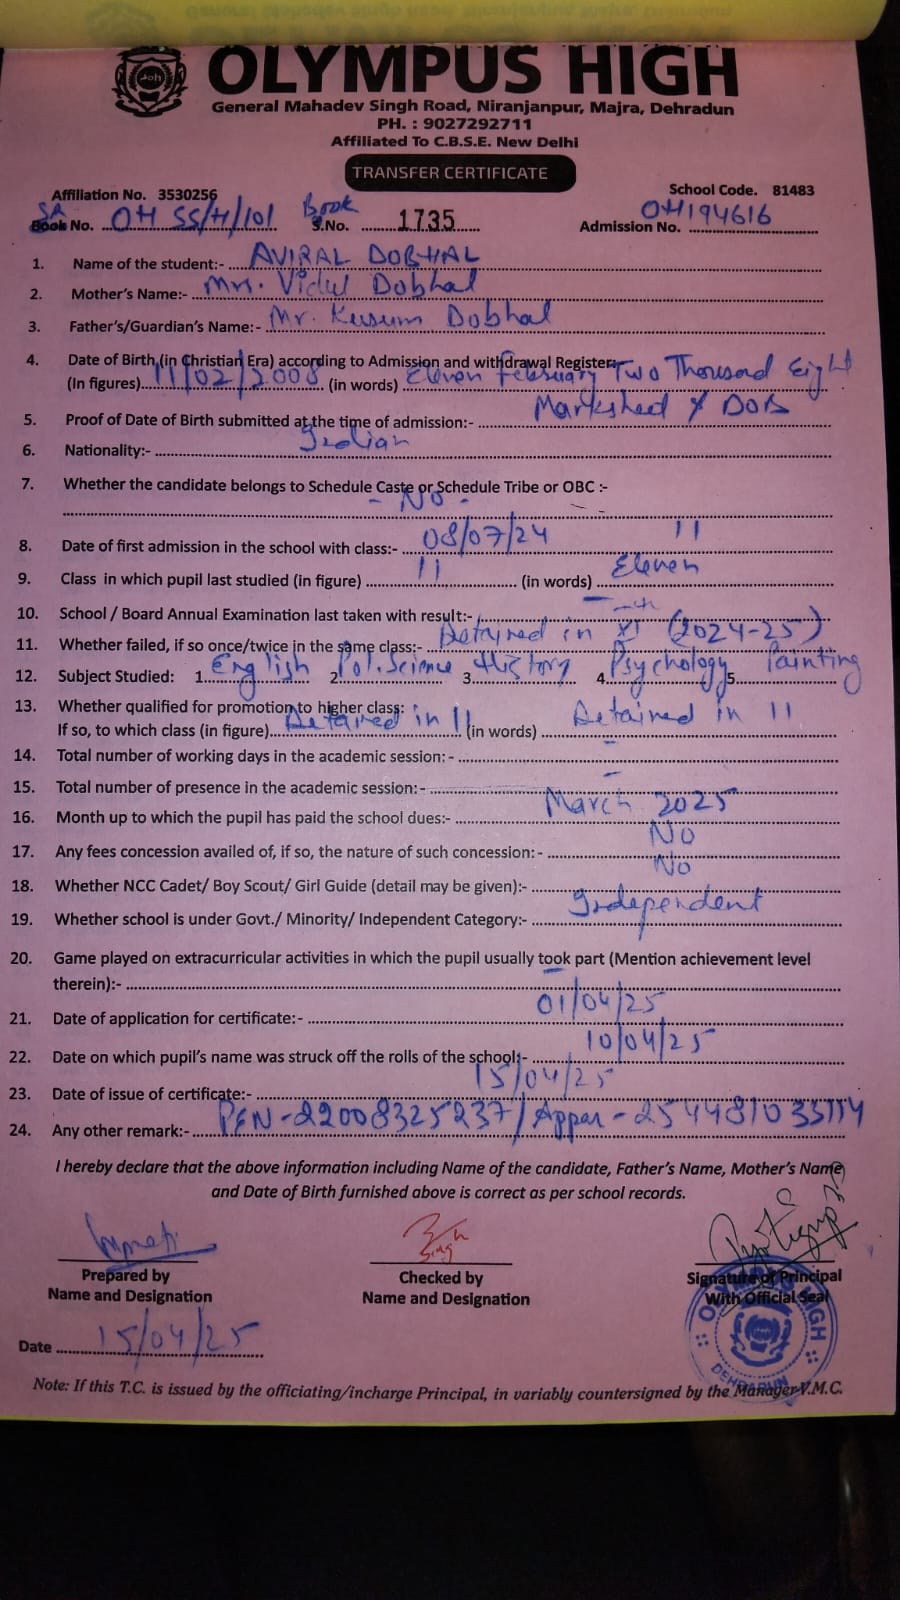 OLYMPUS HIGH
General Mahadev Singh Road, Niranjanpur, Majra, Dehradun
PH. : 9027292711
Affiliated To C.B.S.E. New Delhi
TRANSFER CERTIFICATE
Affiliation No. 3530256 School Code. 81483
SR Book No. OH SS/H/101 Book S.No. 1735 Admission No. OH194616
1. Name of the student:- AVIRAL DOBHAL
2. Mother's Name:- Mrs. Dobhal
3. Father's/Guardian's Name:- Mr. Kusum Dobhal
4. Date of Birth (in Christian Era) according to Admission and withdrawal Register:
(In figures) 11/02/2008 (in words) Eleven February Two Thousand Eight
5. Proof of Date of Birth submitted at the time of admission:- DOB
6. Nationality:- Indian
7. Whether the candidate belongs to Schedule Caste or Schedule Tribe or OBC :-
- No -
8. Date of first admission in the school with class:- 08/07/24 11
9. Class in which pupil last studied (in figure) 11 (in words) Eleven
10. School / Board Annual Examination last taken with result:- —
11. Whether failed, if so once/twice in the same class:- Detained in XI th (2024-25)
12. Subject Studied: 1. English 2. Pol. Science 3. History 4. Psychology 5. Painting
13. Whether qualified for promotion to higher class:
If so, to which class (in figure) Detained in 11 (in words) Detained in 11
14. Total number of working days in the academic session: - –
15. Total number of presence in the academic session:- –
16. Month up to which the pupil has paid the school dues:- March 2025
17. Any fees concession availed of, if so, the nature of such concession: - No
18. Whether NCC Cadet/ Boy Scout/ Girl Guide (detail may be given):- No
19. Whether school is under Govt./ Minority/ Independent Category:- Independent
20. Game played on extracurricular activities in which the pupil usually took part (Mention achievement level
therein):- –
21. Date of application for certificate:- 01/04/25
22. Date on which pupil's name was struck off the rolls of the school:- 10/04/25
23. Date of issue of certificate:- 15/04/25
24. Any other remark:- PEN-22008325237/Appar-
I hereby declare that the above information including Name of the candidate, Father's Name, Mother's Name
and Date of Birth furnished above is correct as per school records.
Singh
Prepared by Checked by Signature of Principal
Name and Designation Name and Designation With Official Seal
OLYMPUS HIGH
DEHRADUN
Date 15/04/25
Note: If this T.C. is issued by the officiating/incharge Principal, in variably countersigned by the Manager V.M.C.